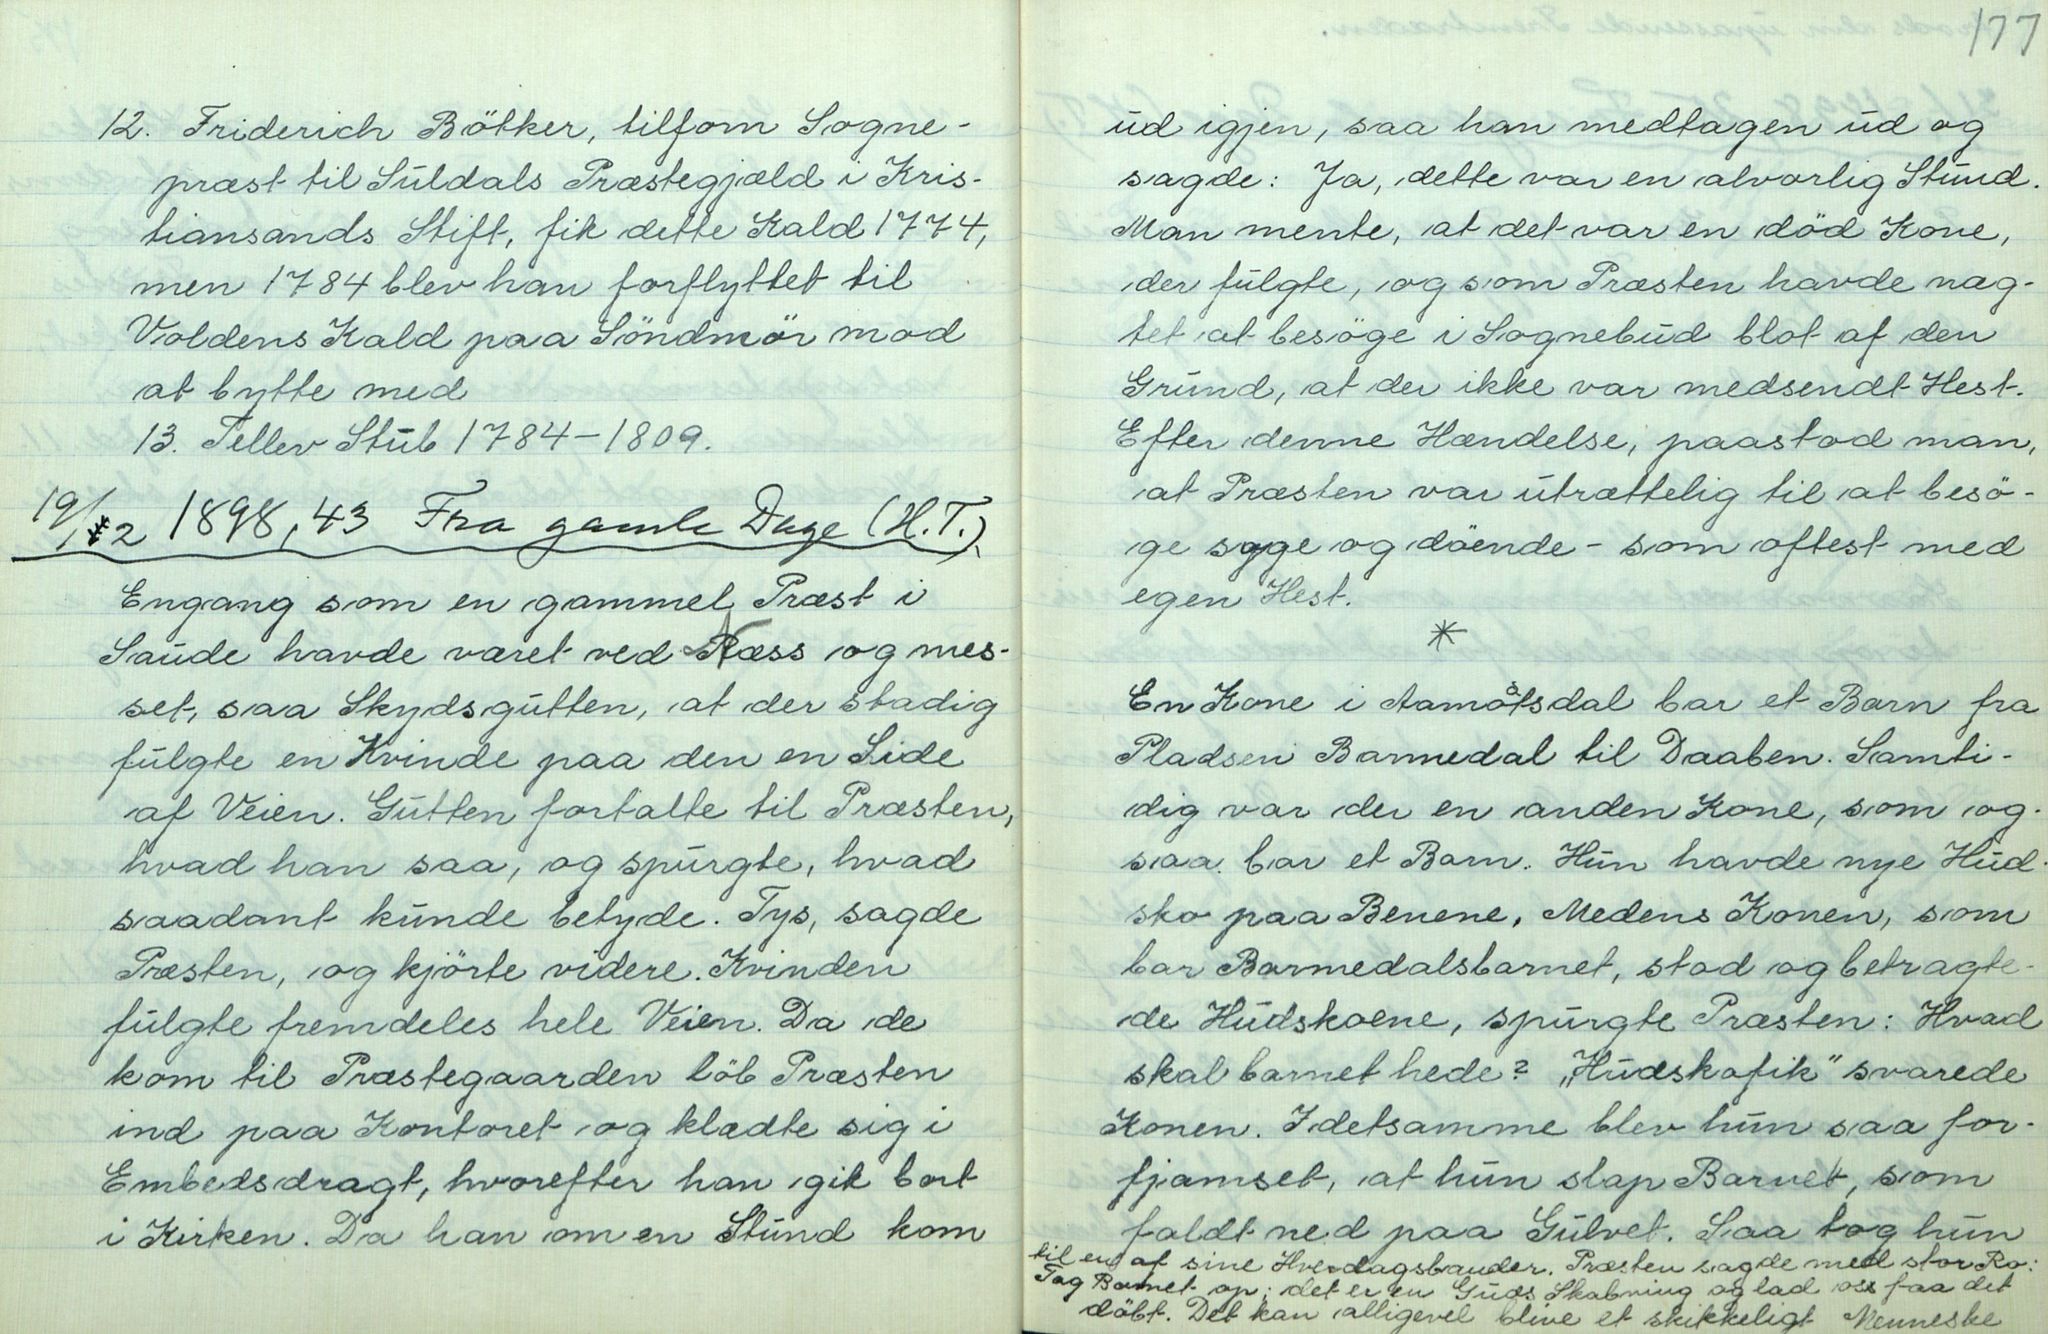 12. Friderich Bötker, tilforn Sogne-
præst til Suldals Præstegjæld i Kris-
tiansands Stift, fik dette Kald 1774,
men 1784 blev han forflyttet til
Voldens Kald paa Söndmör mod
at bytte med
13. Tellev Stub 1784-1809.
19/12 1898, 43 Fra gamle Dage (H.T.).
Engang som en gammel Præst i
Saude havde været ved Næss og mes-
set, saa Skydsgutten, at der stadig
fulgte en Kvinde paa den en Side
af Veien. Gutten fortalte til Præsten,
hvad han saa, og spurgte, hvad
saadant kunde betyde. Tys, sagde
Præsten, og kjörte videre. Kvinden
fulgte fremdeles hele Veien. Da de
kom til Præstegaarden löb Præsten
ind paa Kontoret og klædte sig i
Embedsdragt, hvorefter han gik bort
i Kirken. Da han om en Stund kom
177
ud igjen, saa han medtagen ud og
sagde: Ja, dette var en alvorlig Stund.
Man mente, at det var en död Kone,
der fulgte, og som Præsten havde næg-
tet at besöge i Sognebud blot af den
Grund, at der ikke var medsendt Hest.
Efter denne Hændelse, paastod man,
at Præsten var utrættelig til at besö-
ge syge og döende - som oftest med
egen Hest.
*
En Kone i Aamotsdal bar et Barn fra
Pladsen Barmedal til Daaben. Samti-
dig var der en anden Kone, som og-
saa bar et Barn. Hun havde nye Hud-
sko paa Benene. Medens Konen, som
bar Barmedalsbarnet, stod og betragte-
de Hudskoene, spurgte Præsten: Hvad
skal barnet hede? "Hudskofik" svarede
Konen. I detsamme blev hun saa for-
fjamset, at hun slap Barnet, som
faldt ned paa Gulvet. Saa tog hun
til en af sine Hverdagsbander. Præsten sagde med stor Ro:
Tag Barnet op; det er en Guds Skabning og lad oss faa det
döbt. Det kan alligevel blive et skikkeligt Menneske